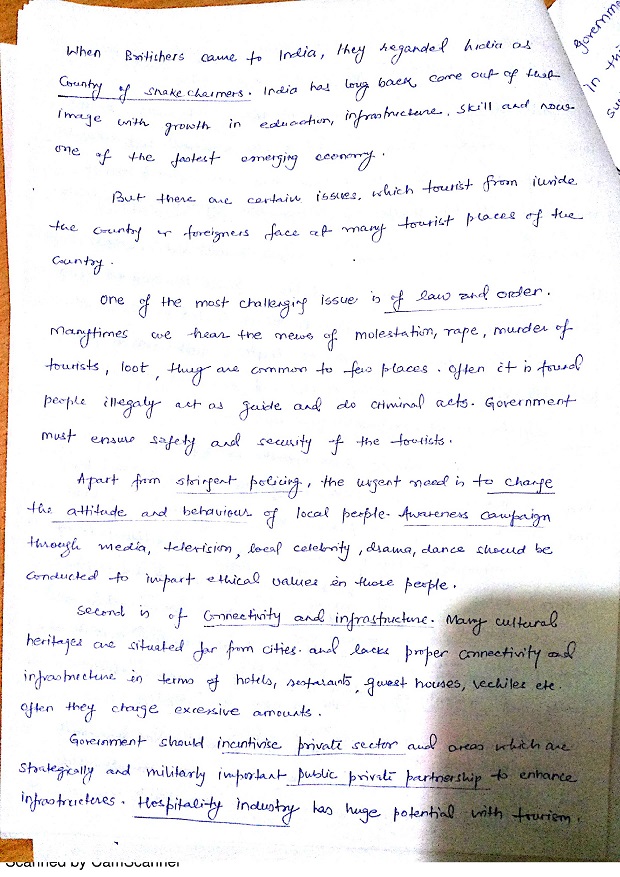 When Britishers came to India, they regarded India as
Country of snake charmers. India has long back come out of that
image with growth in education, infrastructure, skill and now
one of the fastest emerging economy.
But there are certain issues, which tourist from inside
the country or foreigners face at many tourist places of the
Country.
One of the most challenging issue is of law and order.
Manytimes we hear the news of molestation, rape, murder of
tourists, loot, thug are common to few places. Often it is found
people illegaly act as guide and do criminal acts. Government
must ensure safety and security of the tourists.
Apart from stringent policing, the urgent need is to change
the attitude and behaviour of local people. Awareness campaign
through media, television, local celebrity, drama, dance should be
conducted to impart ethical values in those people.
Second is of Connectivity and infrastructure. Many cultural
heritages are situated far from cities and lacks proper connectivity and
infrastructure in terms of hotels, restaraints, guest houses, vechiles etc.
Often they charge excessive amounts.
Government should incentivise private sector and areas which are
strategically and militarly important public private partnership to enhance
infrastructures. Hospitality industry has huge potential with tourism.
governm
in thi
su
Scanned by CamScanner